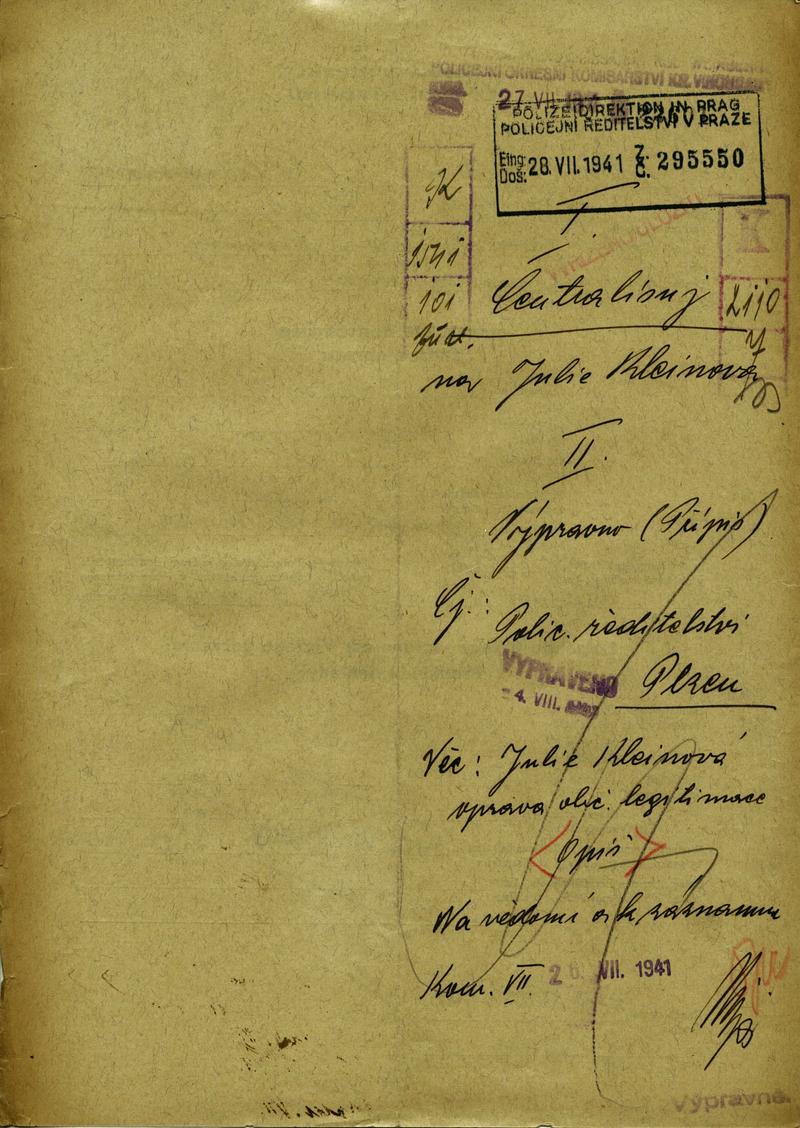 POLICEJNÍ OKRESNÍ KOMISAŘSTVÍ KR. VINOHRADY
27. VII.
POLIZEIDIREKTION IN PRAG
POLICEJNÍ ŘEDITELSTVÍ V PRAZE
Eing: Doš: 28. VII. 1941 Z: Č. 295550
K
I.
1541
101
Centralisuj
2110
na Julie Kleinová
II.
Výpravno (Přípis)
Čj.:
Polic. ředitelství
VYPRAVENO
Plzeň
- 4. VIII.
Věc: Julie Kleinová
oprava obč. legitimace
<Opis>
Na vědomí a k záznamu
Kom. VII
26. VII. 1941
Výpravna